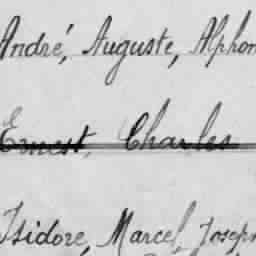 André, Auguste, Alphon
Ernest, Charles
Isidore, Marcel, Joseph